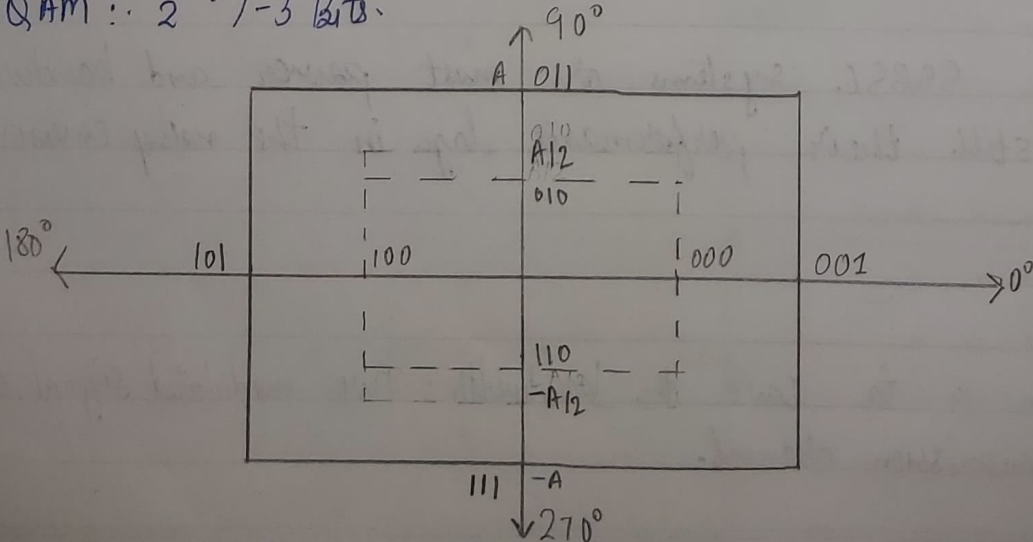 QAM :. 2 /-3 Bits.
90°
A 011
A/2
010
180° 101 100 000 001 0°
110
-A/2
111 -A
270°